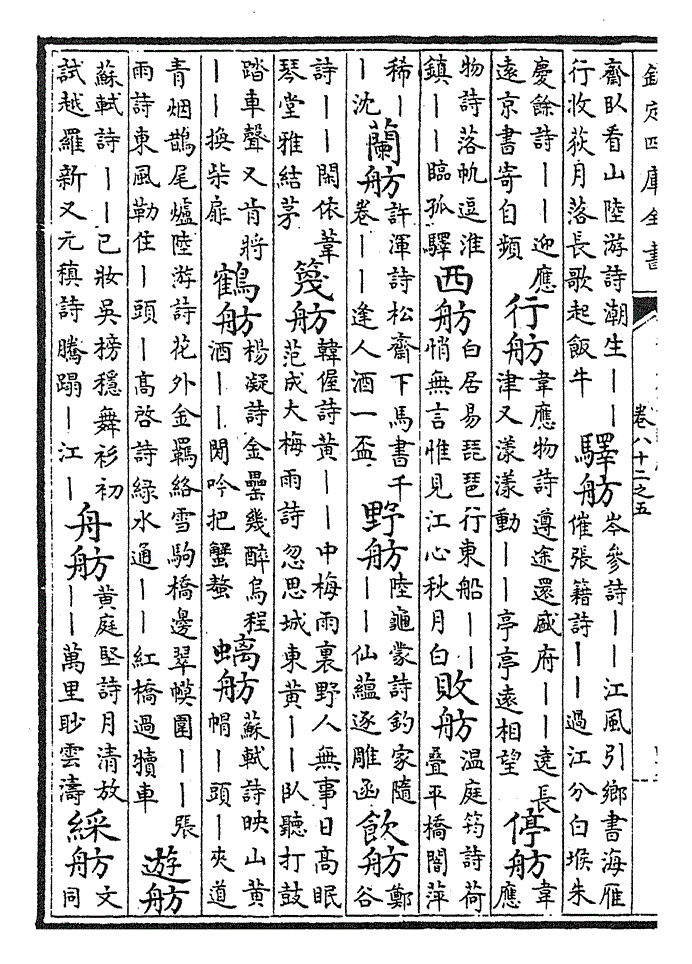 欽定四庫全書
卷八十二之五
齋臥看山陸游詩潮生丨丨
行收荻月落長歌起飯牛
驛舫
岑參詩丨丨江風引鄉書海雁
催張籍詩丨丨過江分白堠朱
慶餘詩丨丨迎應
遠京書寄自頻
行舫
韋應物詩遵途還盛府丨丨遶長
津又漾漾動丨丨亭亭遠相望
停舫
韋
應
物詩落帆逗淮
鎮丨丨臨孤驛
西舫
白居易琵琶行東船丨丨
悄無言惟見江心秋月白
敗舫
温庭筠詩荷
疊平橋闇萍
稀丨
丨沈
蘭舫
許渾詩松齋下馬書千
卷丨丨逢人酒一盃
野舫
陸龜蒙詩釣家隨
丨丨仙藴逐雕函
飲舫
鄭
谷
詩丨丨閑依葦
琴堂雅結茅
篾舫
韓偓詩黄丨丨中梅雨裏野人無事日高眠
范成大梅雨詩忽思城東黄丨丨臥聽打鼓
踏車聲又肯將
丨丨換柴扉
鶴舫
楊凝詩金罍幾醉烏程
酒丨丨閑吟把蟹螯
螭舫
蘇軾詩映山黄
帽丨頭丨夾道
青烟鵲尾爐陸游詩花外金羈絡雪駒橋邊翠幙圍丨丨張
雨詩東風勒住丨頭丨高啓詩綠水通丨丨紅橋過犢車
遊舫
蘇軾詩丨丨已妝吳榜穩舞衫初
試越羅新又元稹詩騰蹋丨江丨
舟舫
黄庭堅詩月清放
丨丨萬里眇雲濤
綵舫
文
同